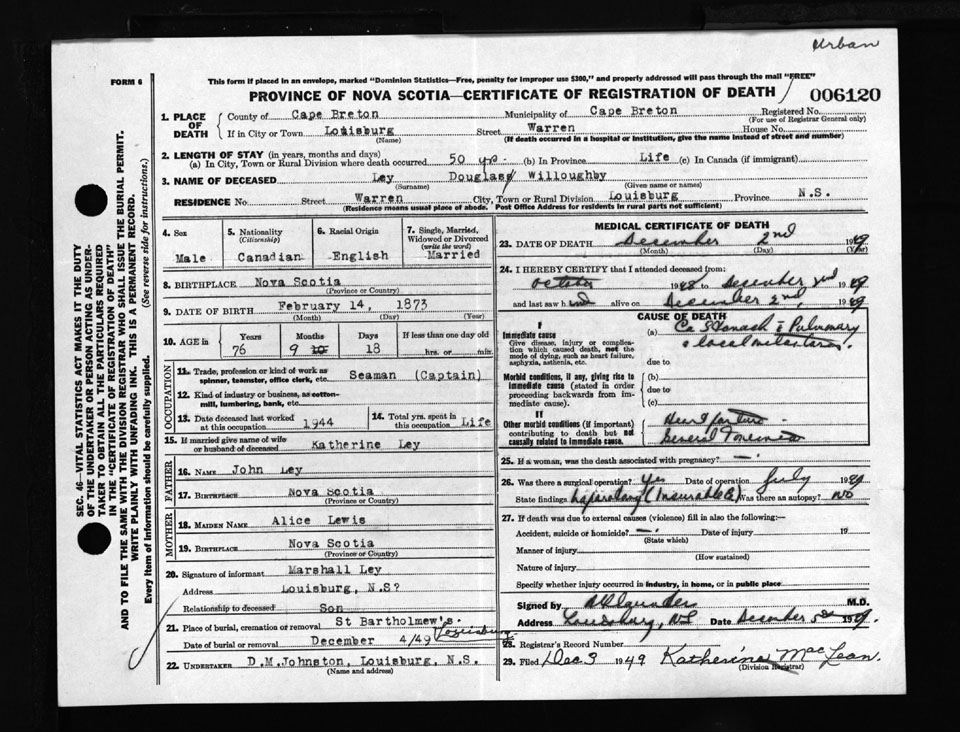 Urban
FORM 6
This form if placed in an envelope, marked "Dominion Statistics—Free, penalty for improper use $300," and properly addressed will pass through the mail "FREE"
PROVINCE OF NOVA SCOTIA—CERTIFICATE OF REGISTRATION OF DEATH
006120
1. PLACE OF DEATH
County of Cape Breton Municipality of Cape Breton Registered No.
(For use of Registrar General only)
If in City or Town Louisburg Street Warren House No.
(Name) (If death occurred in a hospital or institution, give the name instead of street and number)
2. LENGTH OF STAY (in years, months and days)
(a) In City, Town or Rural Division where death occurred 50 yrs. (b) In Province Life (c) In Canada (if immigrant)
3. NAME OF DECEASED Ley Douglass Willoughby
(Surname) (Given name or names)
RESIDENCE No. Street Warren City, Town or Rural Division Louisburg Province N.S.
(Residence means usual place of abode. Post Office Address for residents in rural parts not sufficient)
4. Sex
Male
5. Nationality
(Citizenship)
Canadian
6. Racial Origin
English
7. Single, Married, Widowed or Divorced
(write the word)
Married
8. BIRTHPLACE Nova Scotia
(Province or Country)
9. DATE OF BIRTH February 14, 1873
(Month) (Day) (Year)
10. AGE in
Years Months Days If less than one day old
76 9 10 18 hrs. or min.
OCCUPATION
11. Trade, profession or kind of work as spinner, teamster, office clerk, etc. Seaman (Captain)
12. Kind of industry or business, as cotton-mill, lumbering, bank, etc.
13. Date deceased last worked at this occupation 1944
14. Total yrs. spent in this occupation Life
15. If married give name of wife or husband of deceased Katherine Ley
FATHER
16. NAME John Ley
17. BIRTHPLACE Nova Scotia
(Province or Country)
MOTHER
18. MAIDEN NAME Alice Lewis
19. BIRTHPLACE Nova Scotia
(Province or Country)
20. Signature of informant Marshall Ley
Address Louisburg, N.S?
Relationship to deceased Son
21. Place of burial, cremation or removal St Bartholmew's. Louisburg
Date of burial or removal December 4/49
22. UNDERTAKER D.M.Johnston, Louisburg, N.S.
(Name and address)
MEDICAL CERTIFICATE OF DEATH
23. DATE OF DEATH December 2nd 1949
(Month) (Day) (Year)
24. I HEREBY CERTIFY that I attended deceased from:
October 1948 to December 2nd 1949
and last saw him alive on December 2nd, 1949
CAUSE OF DEATH
I
Immediate cause
Give disease, injury or complication which caused death, not the mode of dying, such as heart failure, asphyxia, asthenia, etc.
(a) Ca Stomach Pulmonary
local
due to
Morbid conditions, if any, giving rise to immediate cause (stated in order proceeding backwards from immediate cause).
(b)
due to
(c)
II
Other morbid conditions (if important) contributing to death but not causally related to immediate cause.
Heart
General
25. If a woman, was the death associated with pregnancy? —
26. Was there a surgical operation? Yes Date of operation July 1949
State findings Laparotomy Was there an autopsy? No
27. If death was due to external causes (violence) fill in also the following:—
Accident, suicide or homicide? — Date of injury 19
(State which)
Manner of injury
(How sustained)
Nature of injury
Specify whether injury occurred in industry, in home, or in public place
Signed by M.D.
Address Louisburg, NS Date December 1949
28. Registrar's Record Number
29. Filed Dec 3 1949 Katherine MacLean.
(Division Registrar)
SEC. 46—VITAL STATISTICS ACT MAKES IT THE DUTY
OF THE UNDERTAKER OR PERSON ACTING AS UNDER-
TAKER TO OBTAIN ALL THE PARTICULARS REQUIRED
IN THE "CERTIFICATE OF REGISTRATION OF DEATH"
AND TO FILE THE SAME WITH THE DIVISION REGISTRAR WHO SHALL ISSUE THE BURIAL PERMIT.
WRITE PLAINLY WITH UNFADING INK. THIS IS A PERMANENT RECORD.
Every item of Information should be carefully supplied. (See reverse side for instructions.)